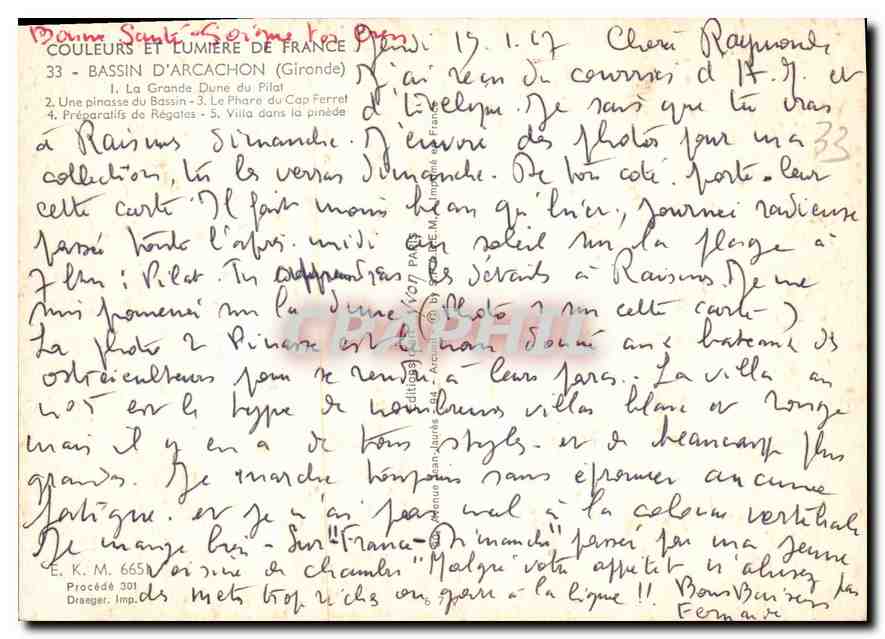 Bonne Santé - Soigne toi bien
COULEURS ET LUMIÈRE DE FRANCE
33 - BASSIN D'ARCACHON (Gironde)
1. La Grande Dune du Pilat
2. Une pinasse du Bassin - 3. Le Phare du Cap Ferret
4. Préparatifs de Régates - 5. Villa dans la pinède
Jeudi 19.1.67 Chère Raymonde
J'ai reçu du courrier d'A.M. et
d'Evelyne. Je sais que tu vas
à Raismes Dimanche. J'envoie des photos pour ma
33
collection, tu les verras dimanche. De ton coté porte-leur
cette carte. Il fait moins beau qu'hier, journée radieuse
passée toute l'après-midi au soleil sur la plage à
7 km : Pilat. Tu apprendras les détails à Raismes. Je me
suis promenée sur la dune (Photo 1 sur cette carte)
La photo 2 Pinasse est le nom donné aux bateaux des
ostréiculteurs pour se rendre à leurs parcs. La villa au
n° 5 est le type de nombreuses villas blanc et rouge
mais il y en a de tous styles et de beaucoup plus
grandes. Je marche toujours sans éprouver aucune
fatigue. et je n'ai pas mal à la colonne vertébrale
Je mange bien - Sur "France-Dimanche" passé par ma jeune
voisine de chambre "Malgré votre appétit n'abusez pas
des mets trop riches ou gare à la ligne !! Bons Baisers
Fernande
E. K. M. 665
Procédé 301
Draeger, Imp.
Éditions d'art YVON PARIS
Avenue Jean-Jaurès - 94 - Arcueil
by S.P.A.D.E.M. Imprimé en France
CPAPHIL